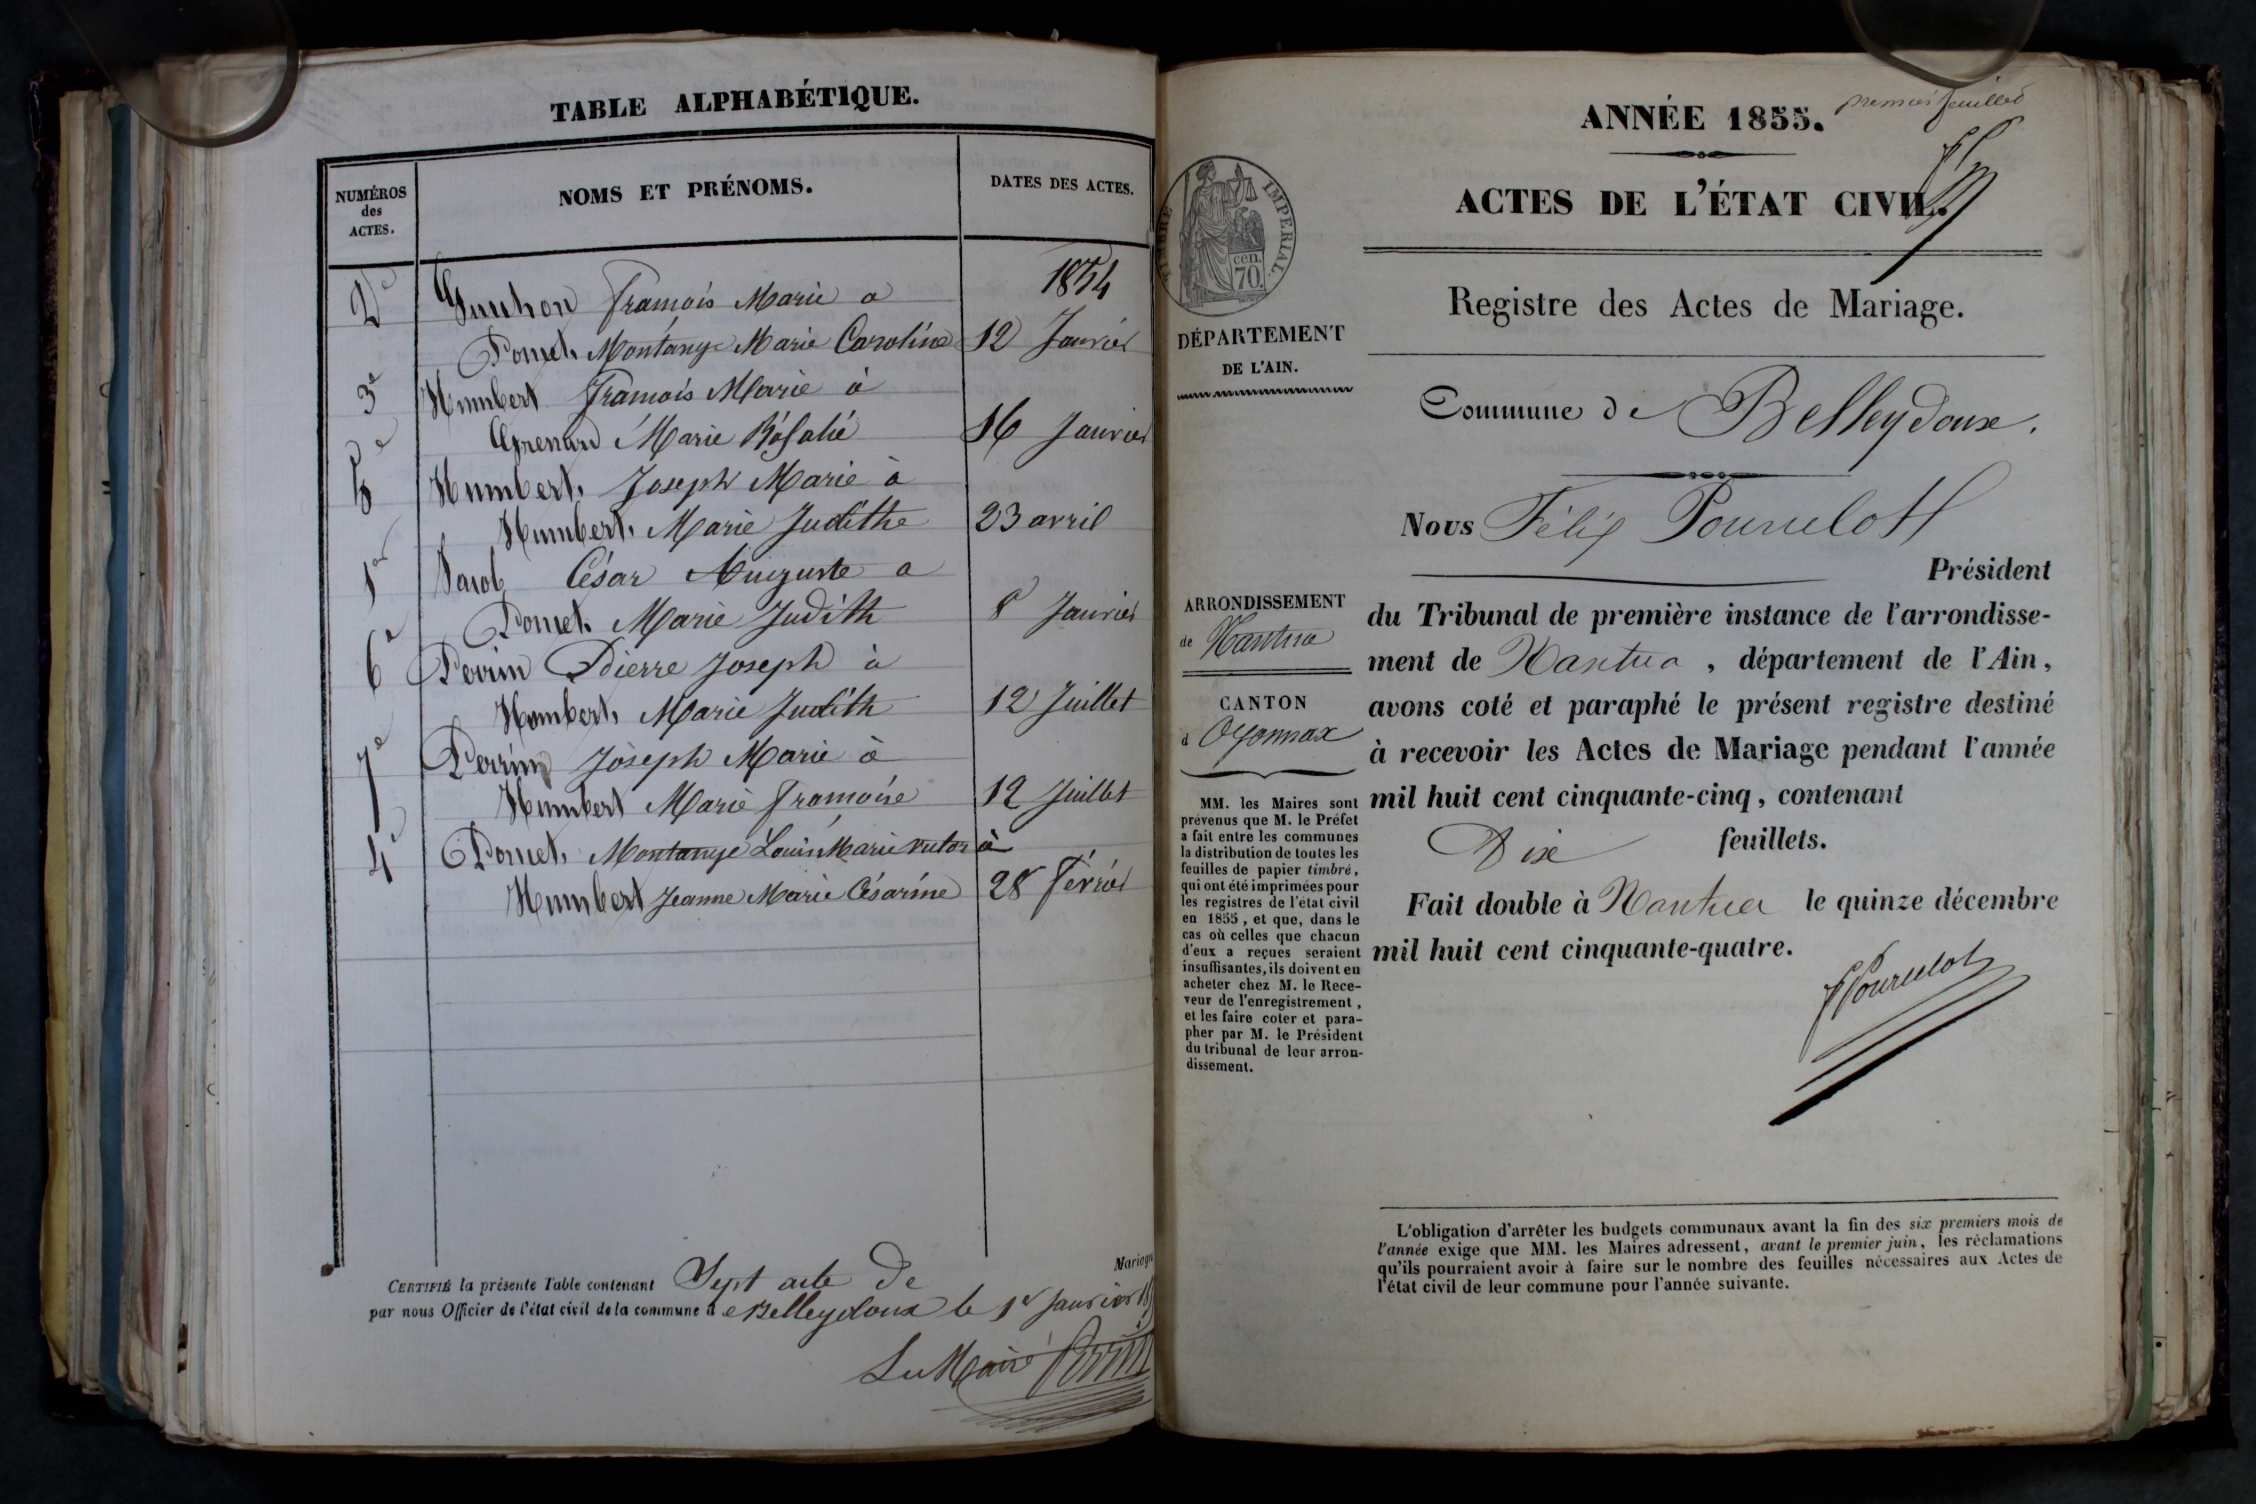 TABLE ALPHABÉTIQUE.
NUMÉROS
des
ACTES.
NOMS ET PRÉNOMS.
DATES DES ACTES.
1854
2e François Marie a
Pomet. Montange Marie Caroline 12 Janvier
3e Humbert François Marie à
Grenard Marie Rosalie 16 Janvier
5e Humbert. Joseph Marie à
Humbert. Marie Judithe 23 avril
1er Jacob César Auguste a
Pomet. Marie Judith 8 Janvier
6e Perrin Pierre Joseph à
Humbert. Marie Judith 12 Juillet
7e Perrin Joseph Marie à
Humbert Marie Françoise 12 Juillet
4e Pomet. Montange Louis Marie Victor à
Humbert Jeanne Marie Césarine 28 Février
Mariage
CERTIFIÉ la présente Table contenant Sept acte De
par nous Officier de l'état civil de la commune de Belleydoux le 1er Janvier
Le Maire Perrin
premier feuillet
ANNÉE 1855.
ACTES DE L'ÉTAT CIVIL.
TIMBRE IMPERIAL.
cen.
70.
Registre des Actes de Mariage.
DÉPARTEMENT
DE L'AIN.
Commune de Belleydoux.
Nous Félix Pourcelot
Président
ARRONDISSEMENT
de Nantua
CANTON
d Oyonnax
du Tribunal de première instance de l'arrondisse-
ment de Nantua, département de l'Ain,
avons coté et paraphé le présent registre destiné
à recevoir les Actes de Mariage pendant l'année
mil huit cent cinquante-cinq, contenant
Dix feuillets.
Fait double à Nantua le quinze décembre
mil huit cent cinquante-quatre.
FPourcelot
MM. les Maires sont
prévenus que M. le Préfet
a fait entre les communes
la distribution de toutes les
feuilles de papier timbré,
qui ont été imprimées pour
les registres de l'état civil
en 1855, et que, dans le
cas où celles que chacun
d'eux a reçues seraient
insuffisantes, ils doivent en
acheter chez M. le Rece-
veur de l'enregistrement,
et les faire coter et para-
pher par M. le Président
du tribunal de leur arron-
dissement.
L'obligation d'arrêter les budgets communaux avant la fin des six premiers mois de
l'année exige que MM. les Maires adressent, avant le premier juin, les réclamations
qu'ils pourraient avoir à faire sur le nombre des feuilles nécessaires aux Actes de
l'état civil de leur commune pour l'année suivante.